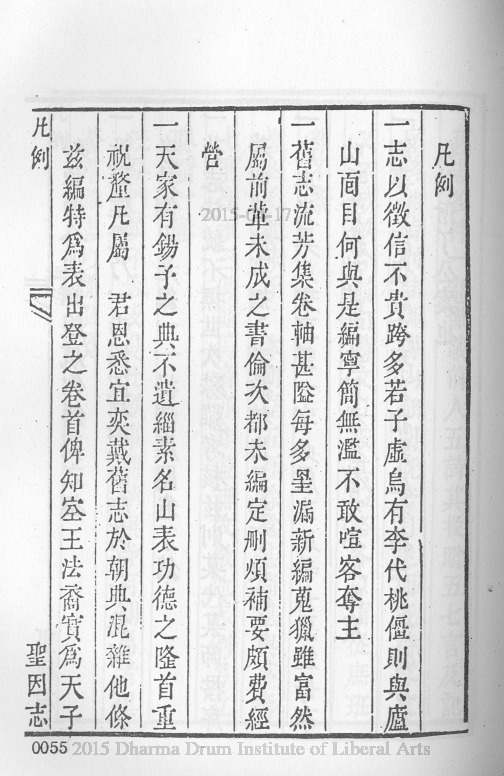 凡例
一志以徵信不貴跨多若子虛烏有李代桃僵則與廬
山面目何與是編寧簡無濫不敢喧客奪主
一舊志流芳集卷軸甚隘每多墨漏新編蒐獵雖富然
屬前輩未成之書倫次都未編定刪煩補要頗費經
營
一天家有錫予之典不遺緇素名山表功德之隆首重
祝釐凡屬 君恩悉宜奕戴舊志於朝典混雜他條
茲編特爲表出登之卷首俾知空王法裔實爲天子
凡例
聖因志
2015-02-17
0055 2015 Dharma Drum Institute of Liberal Arts